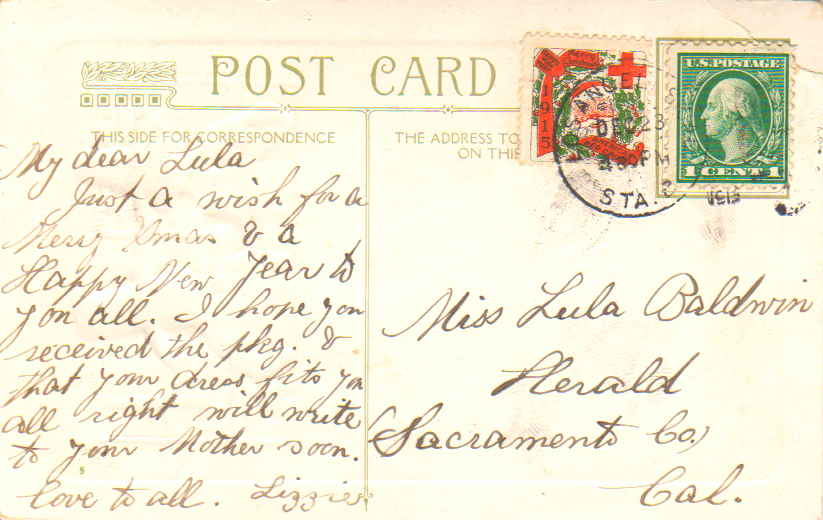 POST CARD
THIS SIDE FOR CORRESPONDENCE
THE ADDRESS TO
ON THIS
1915
DEC 23
PM
STA.
U.S. POSTAGE
1 CENT 1
My dear Lula
Just a wish for a
Merry Xmas & a
Happy New Year to
you all. I hope you
received the pkg. &
that your dress fits you
all right will write
to your Mother soon.
love to all. Lizzie
Miss Lula Baldwin
Herald
Sacramento Co,
Cal.